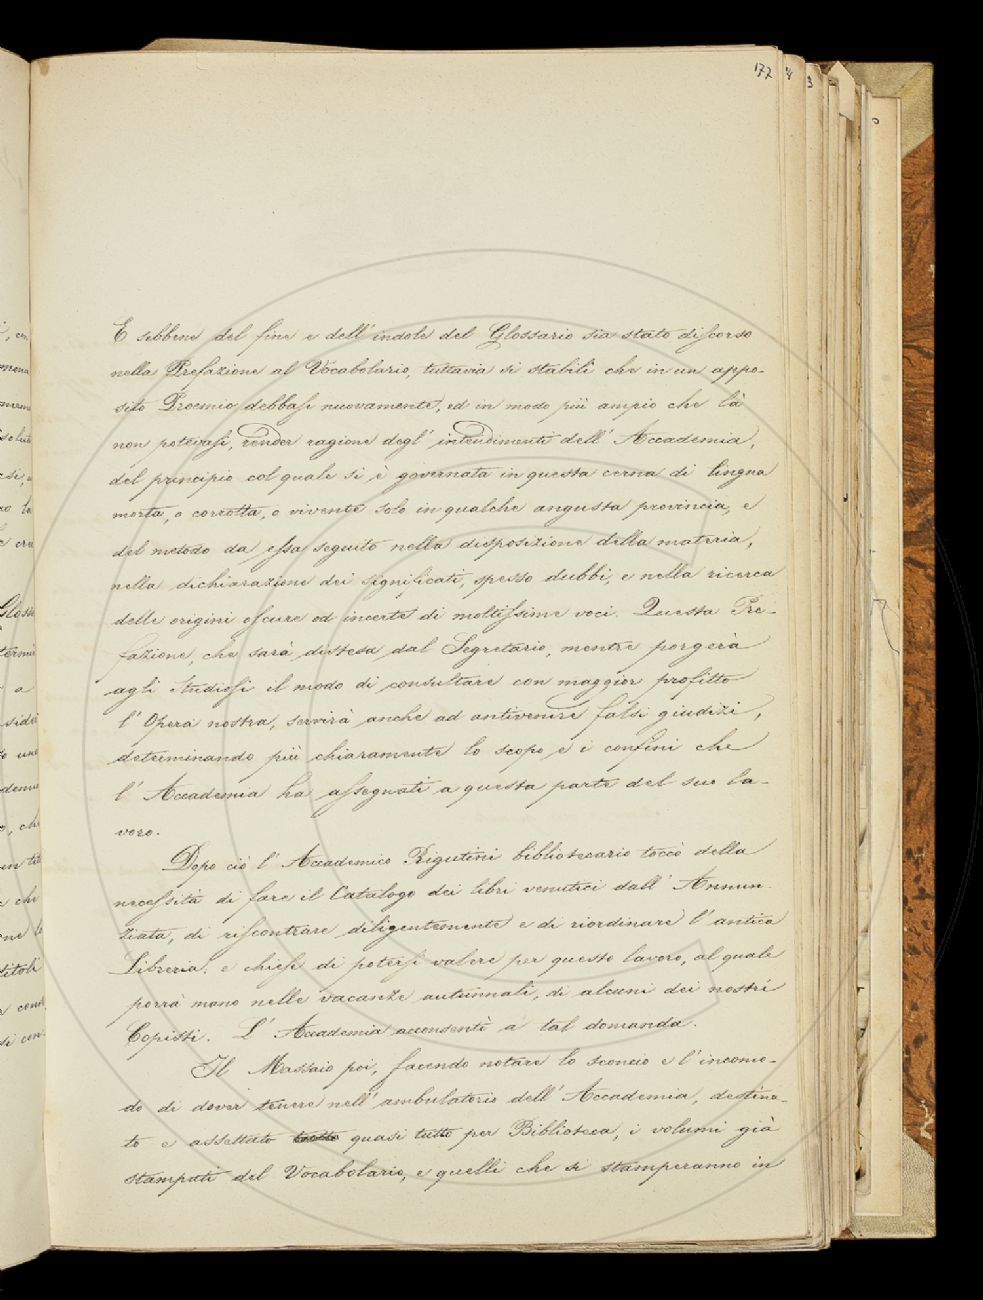 177
E sebbene del fine e dell'indole del Glossario sia stato discorso
nella Prefazione al Vocabolario, tuttavia si stabilì che in un appo-
sito Proemio debbasi nuovamente, ed in modo più ampio che là
non potevasi, render ragione degl'intendimenti dell'Accademia,
del principio col quale si è governata in questa cerna di lingua
morta, o corrotta, o vivente solo in qualche angusta provincia, e
del metodo da essa seguito nella disposizione della materia,
nella dichiarazione dei significati, spesso dubbi, e nella ricerca
delle origini oscure ed incerte di moltissime voci. Questa Pre-
fazione, che sarà distesa dal Segretario, mentre porgerà
agli Studiosi il modo di consultare con maggior profitto
l'Opera nostra, servirà anche ad antivenire falsi giudizi,
determinando più chiaramente lo scopo e i confini che
l'Accademia ha assegnati a questa parte del suo la-
voro.
Dopo ciò l'Accademico Rigutini bibliotecario toccò della
necessità di fare il Catalogo dei libri venutici dall'Annun-
ziata, di riscontrare diligentemente e di riordinare l'antica
Libreria: e chiese di potersi valere per questo lavoro, al quale
porrà mano nelle vacanze autunnali, di alcuni dei nostri
Copisti. L'Accademia acconsentì a tal domanda.
Il Massaio poi, facendo notare lo sconcio e l'incomo-
do di dover tenere nell'ambulatorio dell'Accademia, destina-
to e assettato quasi tutto per Biblioteca, i volumi già
stampati del Vocabolario, e quelli che si stamperanno in